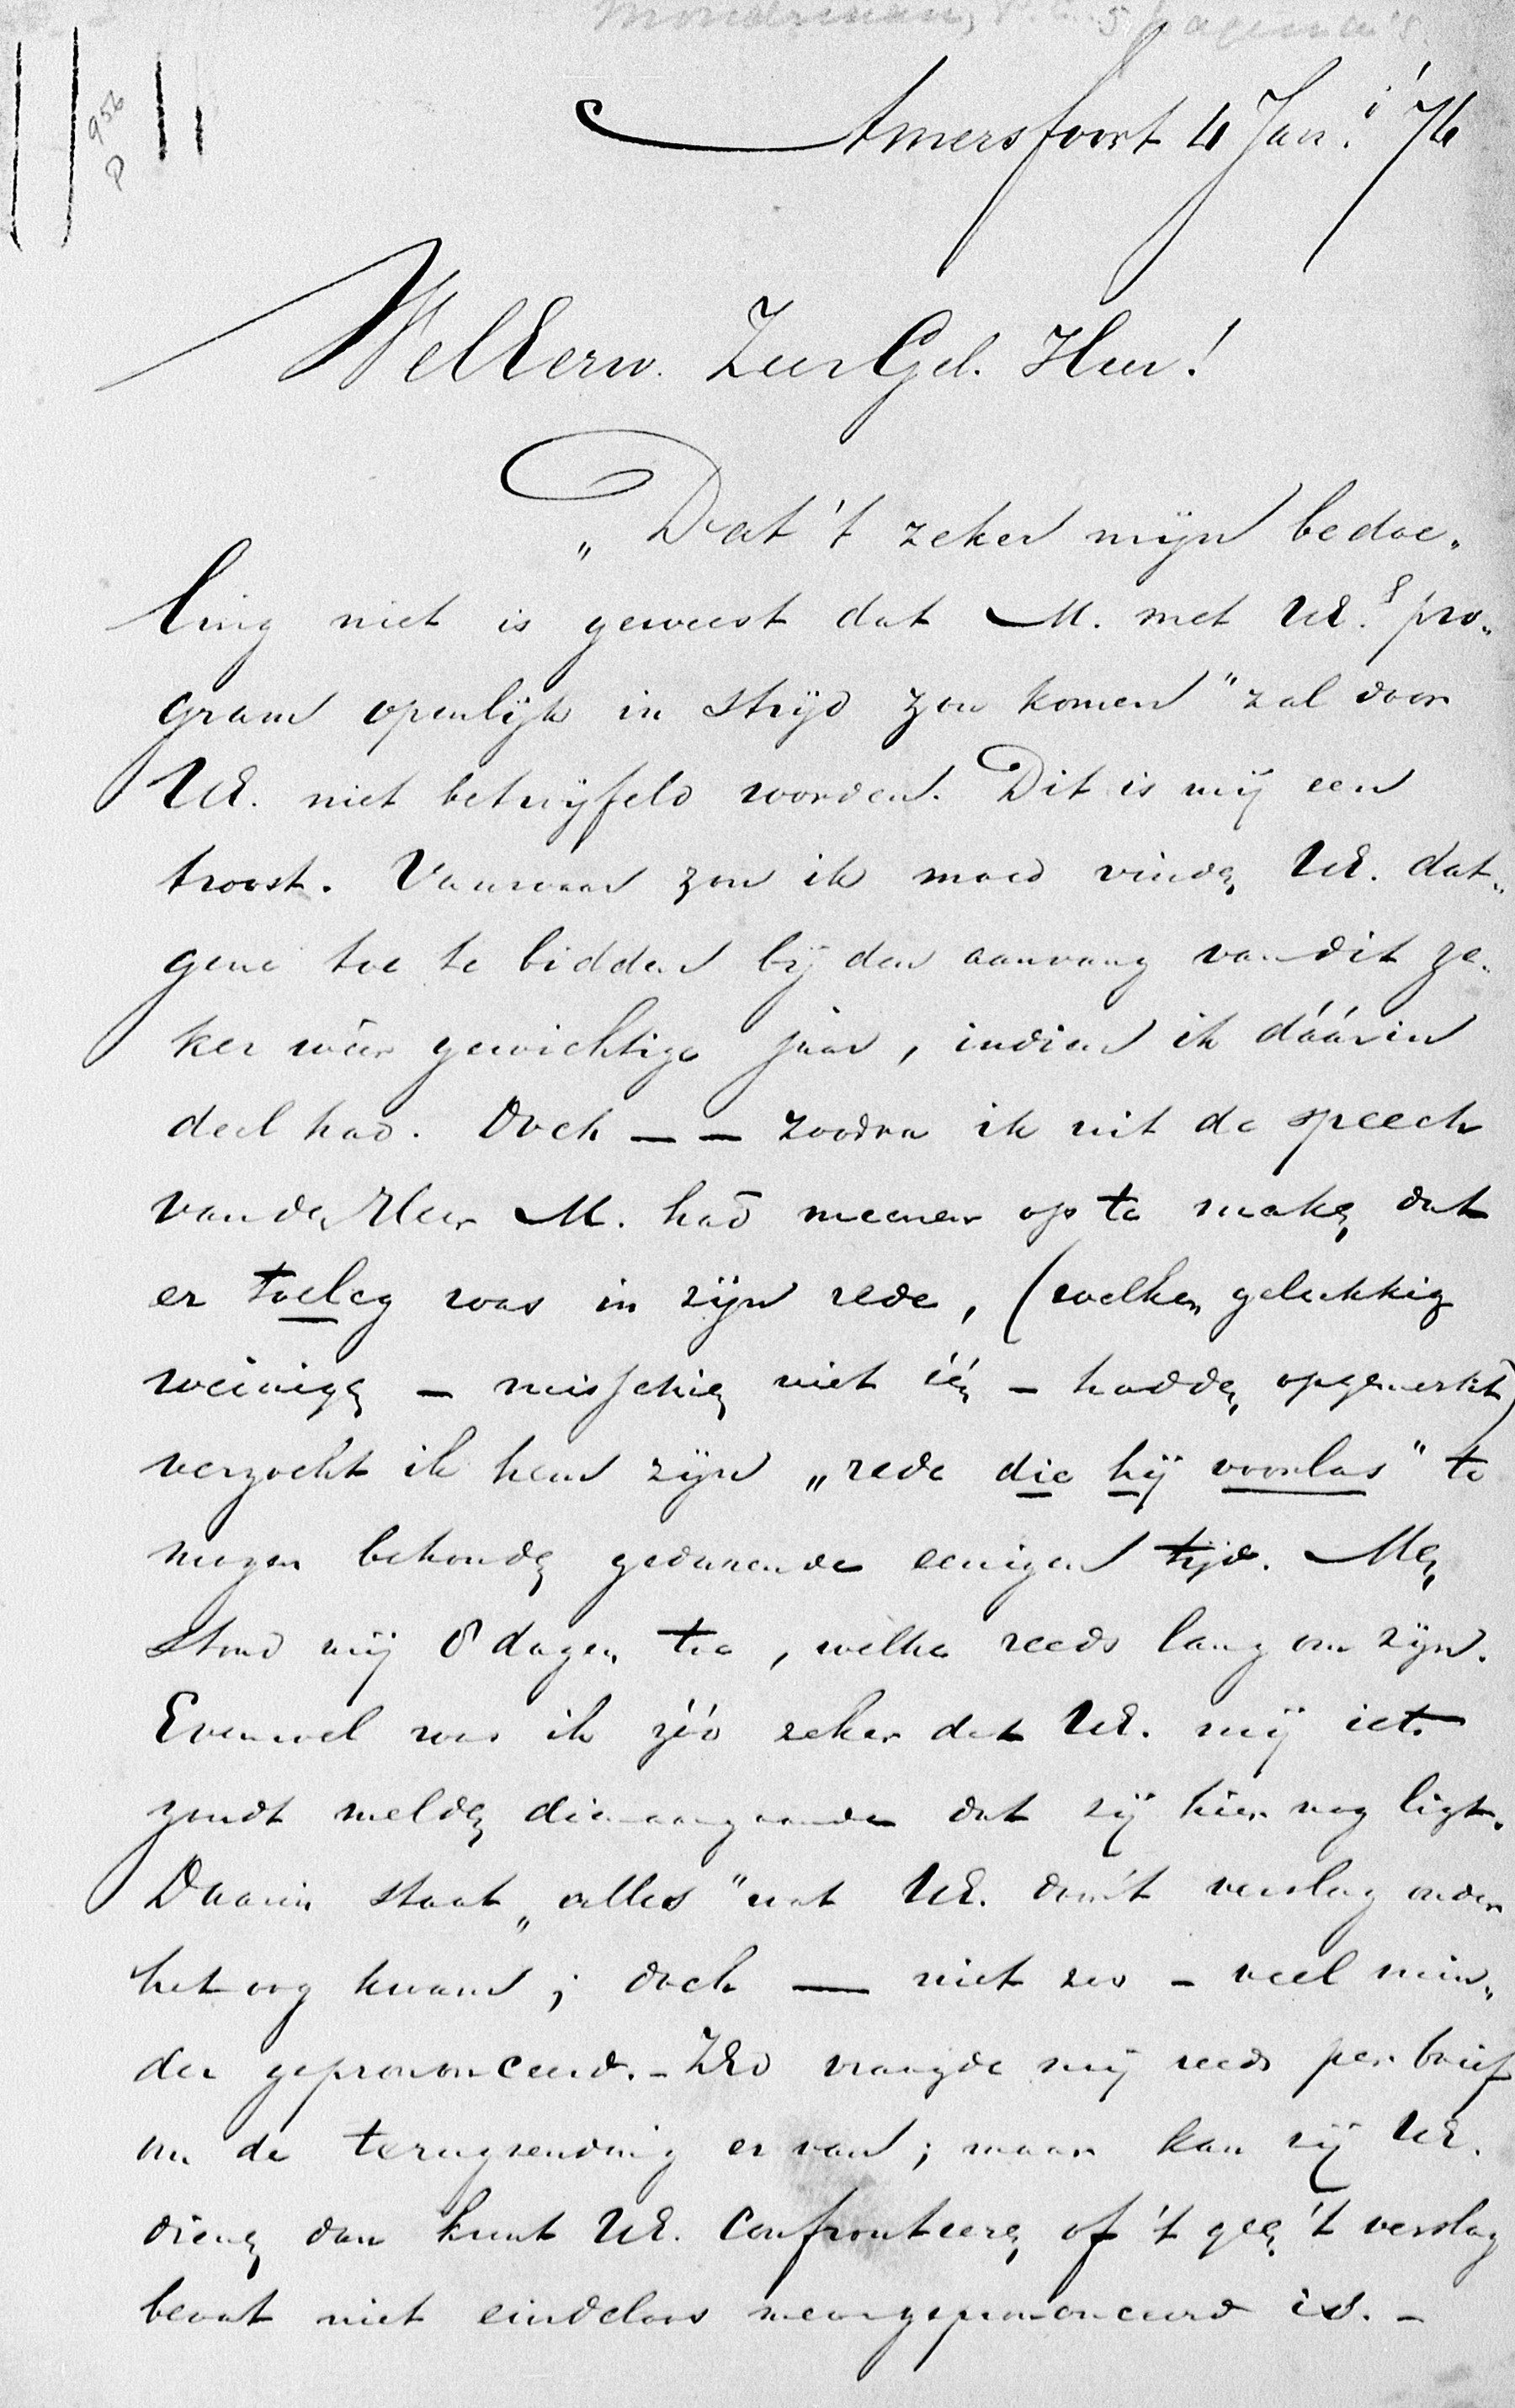 Mondriaan, P.C. 5 pagina's.
956
P
Amersfoort 4 Jan.i '76
WelEerw. ZeerGel. Heer!
„Dat 't zeker mijn bedoe„
ling niet is geweest dat M. met UE.s pro„
gram openlijk in strijd zou komen" zal door
UE. niet betwijfeld worden. Dit is mij een
troost. Vanwaar zou ik moed vinden UE. dat„
gene toe te bidden bij den aanvang van dit ze„
ker wéér gewichtige jaar, indien ik dáárin
deel had. Doch — — zoodra ik uit de speech
van den Heer M. had meenen op te maken dat
er toeleg was in zijn rede, (welken gelukkig
weinigen – misschien niet één – hadden opgemerkt)
verzocht ik hem zijn „rede die hij voorlas" te
mogen behouden gedurende eenigen tijd. Men
stond mij 8 dagen toe, welke reeds lang om zijn.
Evenwel was ik zóó zeker dat UE. mij iets
zoudt melden dienaangaande dat zij hier nog ligt.
Daarin staat „alles" wat UE. door 't verslag onder
het oog kwam; doch — niet zoo – veel min„
der geprononceerd. – ZEd vraagde mij reeds per brief
om de terugzending er van; maar kan zij UE.
dienen dan kunt UE. confronteeren of 't geen 't verslag
bevat niet eindeloos meer geprononceerd is. –